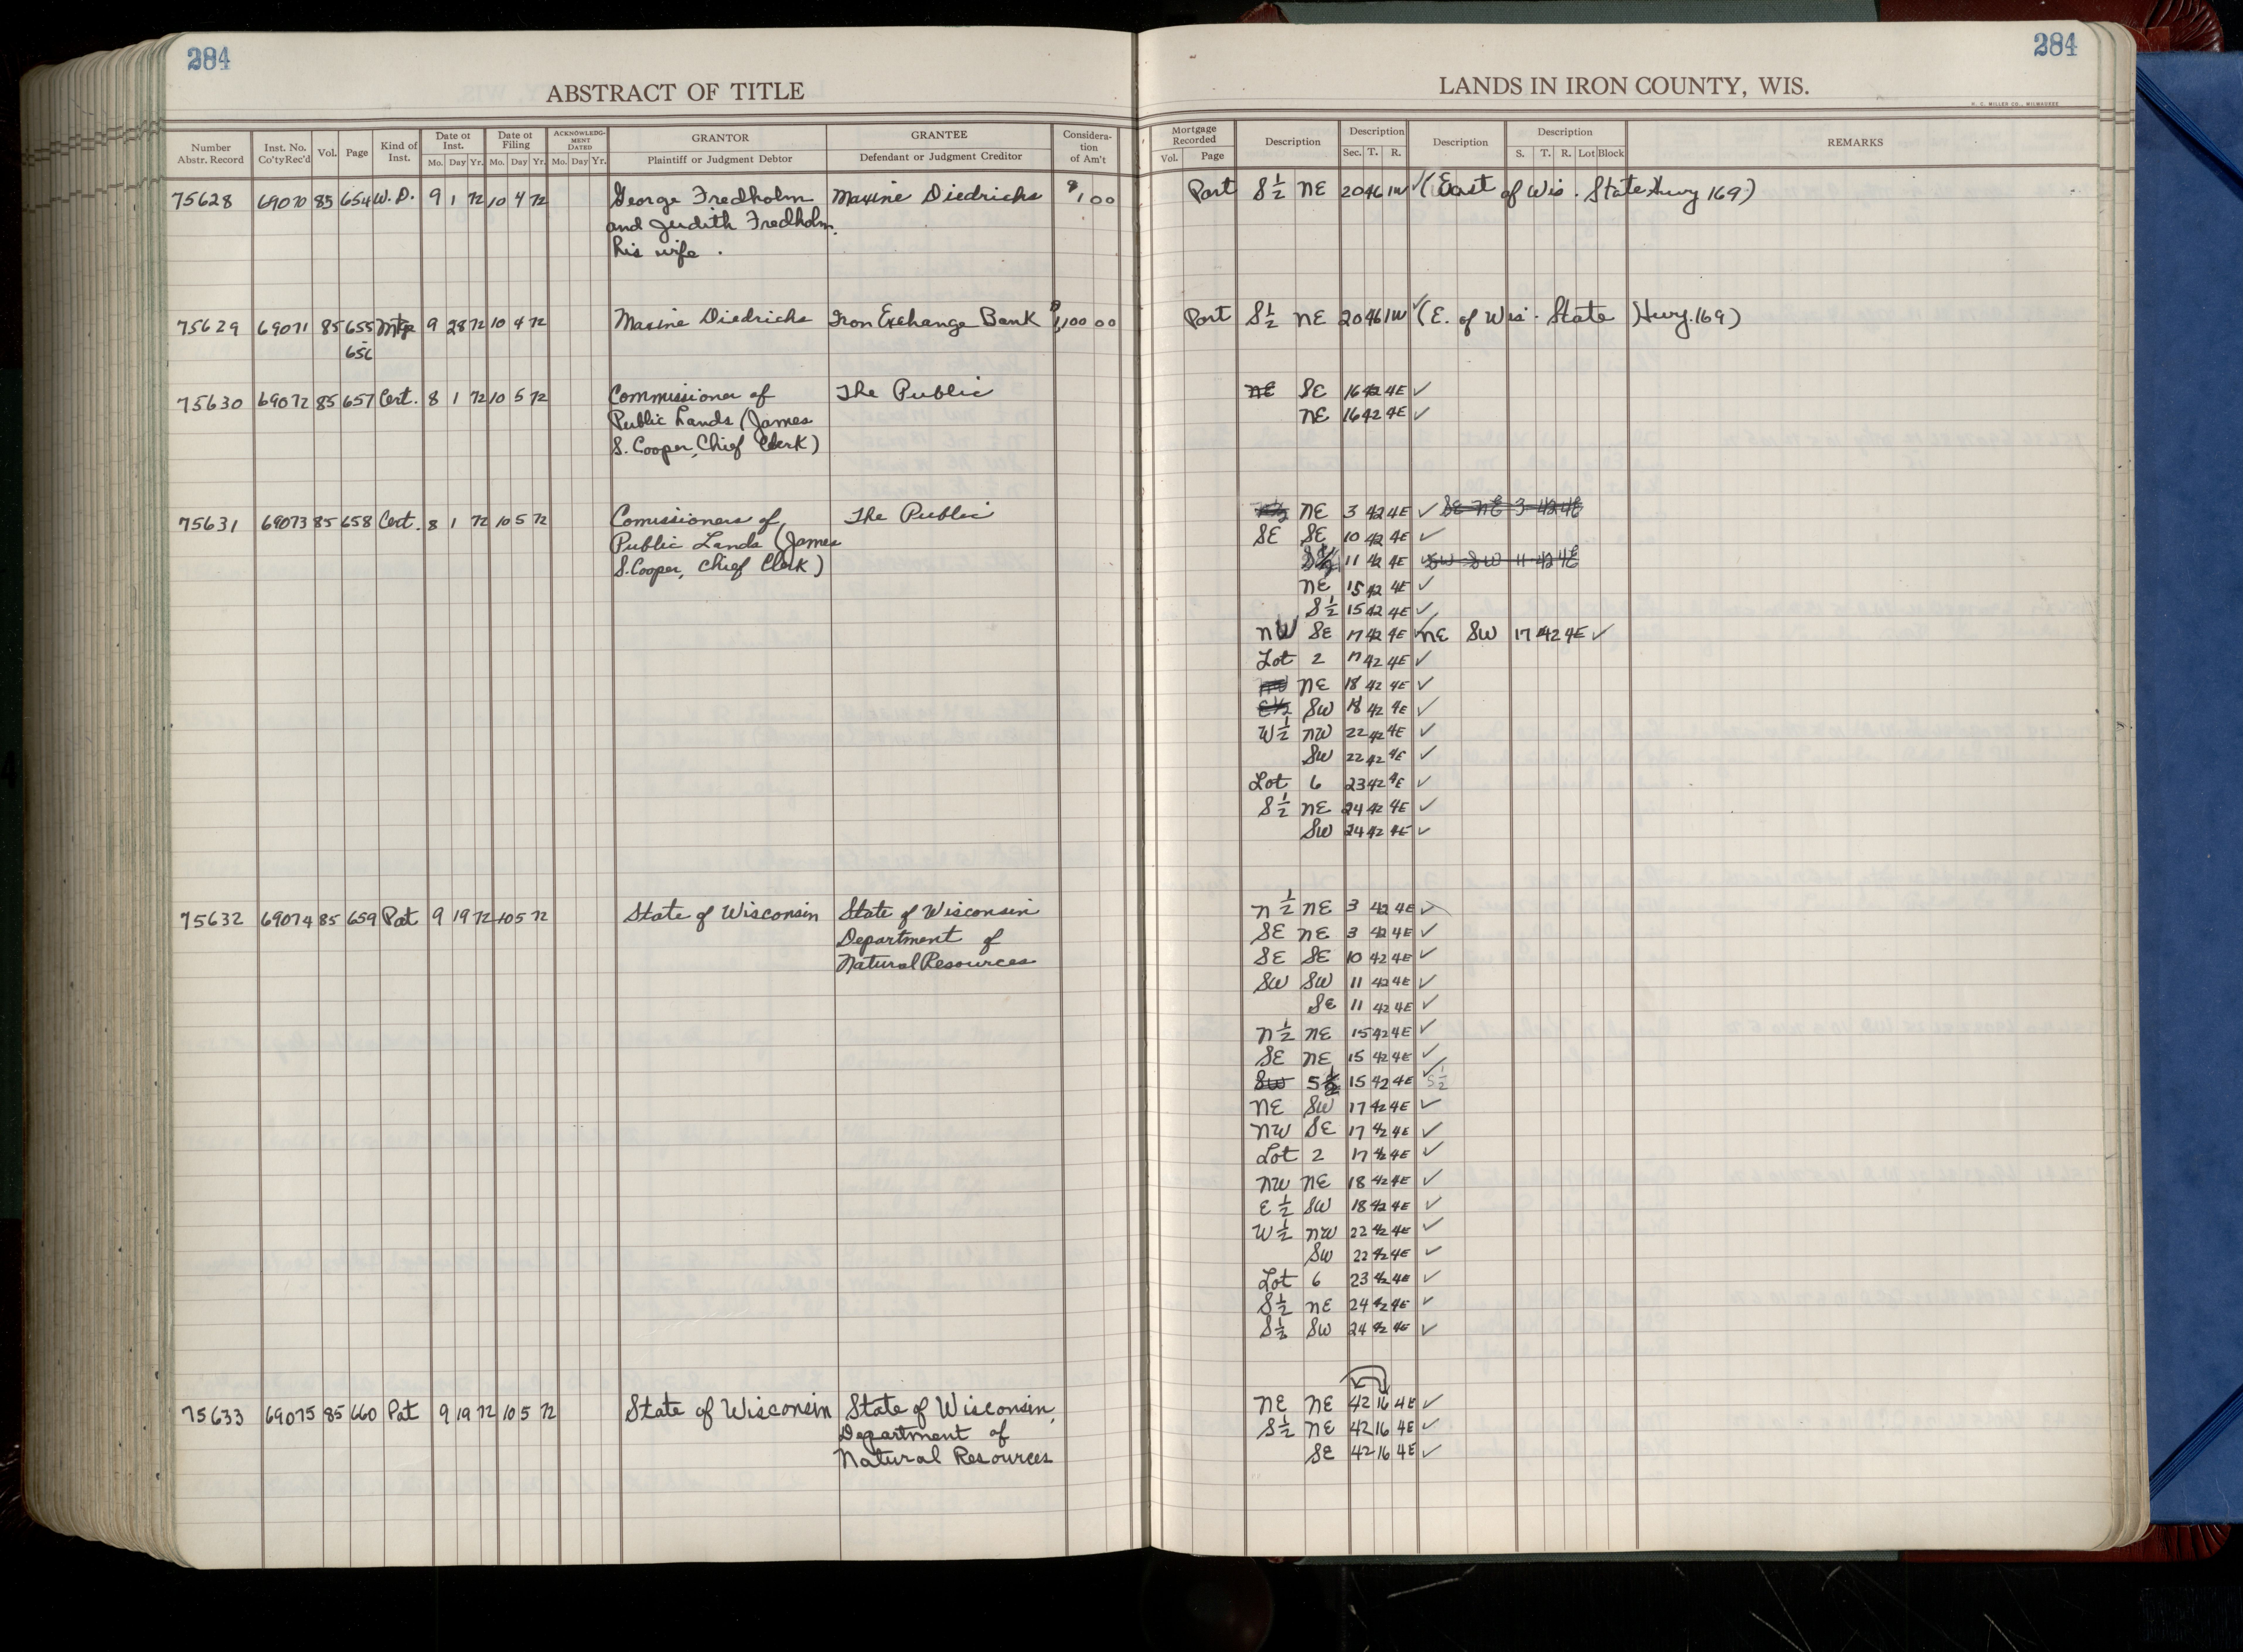 284
ABSTRACT OF TITLE
Number Abstr. Record
Inst. No. Co'ty Rec'd
Vol.
Page
Kind of Inst.
Date of Inst.
Mo. Day Yr.
Date of Filing
Mo. Day Yr.
ACKNOWLEDGMENT DATED
Mo. Day Yr.
GRANTOR
Plaintiff or Judgment Debtor
GRANTEE
Defendant or Judgment Creditor
Considera-
tion
of Am't
284
LANDS IN IRON COUNTY, WIS.
H. C. MILLER CO., MILWAUKEE
Mortgage Recorded
Vol. Page
Description
Description
Sec. T. R.
Description
Description
S. T. R. Lot Block
REMARKS
75628 69070 85 654 W.D. 9 1 72 10 4 72 George Fredholm Maxine Diedrichs $1 00 Part S 1/2 NE 20 46 1W ✓ (East of Wis. State Hwy 169)
and Judith Fredholm,
his wife.
75629 69071 85 655 Mtg 9 28 72 10 4 72 Maxine Diedrichs Iron Exchange Bank $1,100 00 Part S 1/2 NE 20 46 1W ✓ (E. of Wis. State Hwy. 169)
-
656
75630 69072 85 657 Cert. 8 1 72 10 5 72 Commissioner of The Public NE SE 16 42 4E ✓
Public Lands (James NE 16 42 4E ✓
S. Cooper, Chief Clerk)
75631 69073 85 658 Cert. 8 1 72 10 5 72 Comissioners of The Public NE 3 42 4E ✓ SE NE 3 42 4E
Public Lands (James SE SE 10 42 4E ✓
S. Cooper, Chief Clerk) 11 42 4E SW SW 11 42 4E
NE 15 42 4E ✓
S 1/2 15 42 4E ✓
NW SE 17 42 4E ✓ NE SW 17 42 4E ✓
Lot 2 17 42 4E ✓
NW NE 18 42 4E ✓
E 1/2 SW 18 42 4E ✓
W 1/2 NW 22 42 4E ✓
SW 22 42 4E ✓
Lot 6 23 42 4E ✓
S 1/2 NE 24 42 4E ✓
SW 24 42 4E ✓
75632 69074 85 659 Pat 9 19 72 10 5 72 State of Wisconsin State of Wisconsin N 1/2 NE 3 42 4E ✓
Department of SE NE 3 42 4E ✓
Natural Resources SE SE 10 42 4E ✓
SW SW 11 42 4E ✓
SE 11 42 4E ✓
N 1/2 NE 15 42 4E ✓
SE NE 15 42 4E ✓
SW S 1/2 15 42 4E ✓ S 1/2
NE SW 17 42 4E ✓
NW SE 17 42 4E ✓
Lot 2 17 42 4E ✓
NW NE 18 42 4E ✓
E 1/2 SW 18 42 4E ✓
W 1/2 NW 22 42 4E ✓
SW 22 42 4E ✓
Lot 6 23 42 4E ✓
S 1/2 NE 24 42 4E ✓
S 1/2 SW 24 42 4E ✓
75633 69075 85 660 Pat 9 19 72 10 5 72 State of Wisconsin State of Wisconsin, NE NE 42 16 4E ✓
Department of S 1/2 NE 42 16 4E ✓
Natural Resources SE 42 16 4E ✓